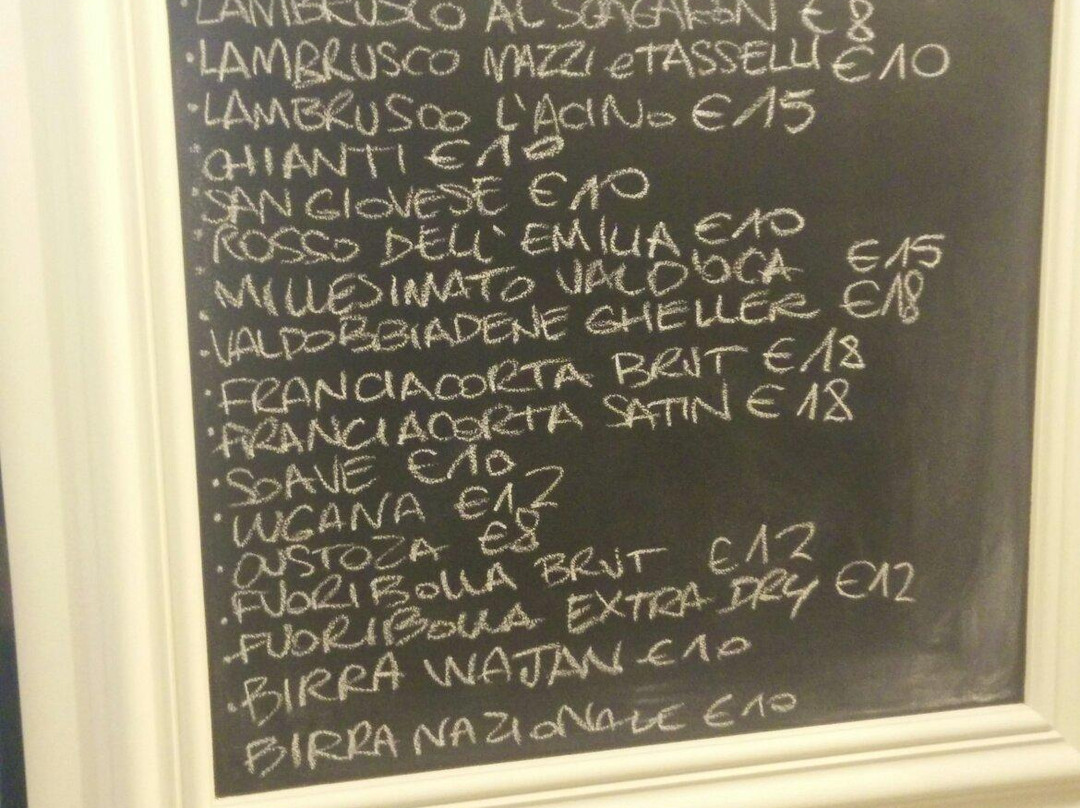 ·LAMBRUSCO AL SCAGARÜN €8
·LAMBRUSCO MAZZI e TASSELLI €10
·LAMBRUSCO L'ACINO €15
·CHIANTI €10
·SANGIOVESE €10
·ROSSO DELL'EMILIA €10
·MILLESIMATO VALD'OCA €15
·VALDOBBIADENE GHELLER €18
·FRANCIACORTA BRUT €18
·FRANCIACORTA SATIN €18
·SOAVE €10
·LUGANA €12
·CUSTOZA €8
·FUORI BOLLA BRUT €12
·FUORI BOLLA EXTRA DRY €12
·BIRRA WAJAN €10
·BIRRA NAZIONALE €10